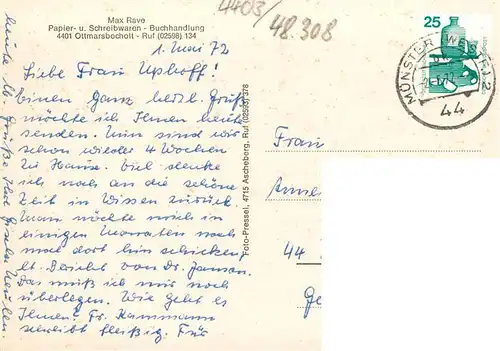 4403/
48 308
Max Rave
Papier- u. Schreibwaren - Buchhandlung
4401 Ottmarsbocholt - Ruf (02598) 134
1. Mai 72
Liebe Frau Uphoff!
Einen ganz herzl. Gruß
möchte ich Ihnen heute
senden. Nun sind wir
schon wieder 4 Wochen
zu Hause. Viel denke
ich noch an die schöne
Zeit in Wissen zurück.
Man möchte mich in
einigen Monaten noch
mal dort hin schicken,
lt. Bericht von Dr. Jansen.
Das muß ich mir noch
überlegen. Wie geht es
Ihnen? Fr. Hammann
schreibt fleißig. Für
heute
Grüße Ihre Gisela
Foto-Pressel, 4715 Ascheberg, Ruf (02593) 378
25
MÜNSTER (WESTF) 2
44
Frau
44